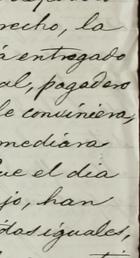 recho, la
á entregado
al, pagadero
le conviniera,
mediara
ue el dia
jo, han
idas iguales,